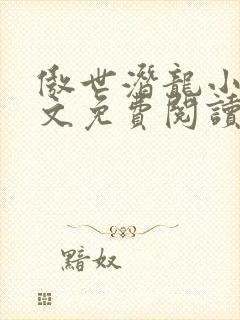 傲世潛龍小
文免費閱讀
黯奴